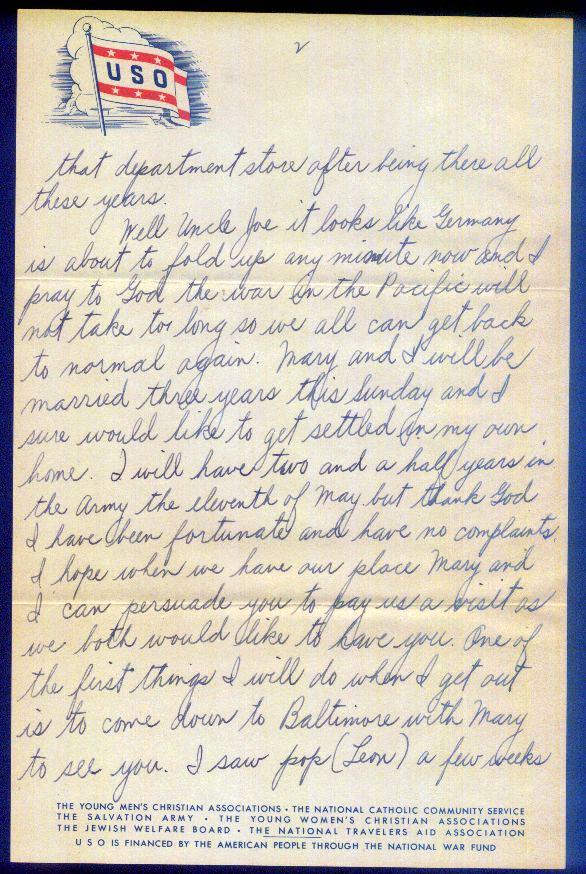 2
USO
that department store after being there all
these years.
Well Uncle Joe it looks like Germany
is about to fold up any minute now and I
pray to God the war in the Pacific will
not take too long so we all can get back
to normal again. Mary and I will be
married three years this Sunday and I
sure would like to get settled in my own
home. I will have two and a half years in
the Army the eleventh of May but thank God
I have been fortunate and have no complaints.
I hope when we have our place Mary and
I can persuade you to pay us a visit as
we both would like to have you. One of
the first things I will do when I get out
is to come down to Baltimore with Mary
to see you. I saw pop (Leon) a few weeks
THE YOUNG MEN'S CHRISTIAN ASSOCIATIONS · THE NATIONAL CATHOLIC COMMUNITY SERVICE
THE SALVATION ARMY · THE YOUNG WOMEN'S CHRISTIAN ASSOCIATIONS
THE JEWISH WELFARE BOARD · THE NATIONAL TRAVELERS AID ASSOCIATION
USO IS FINANCED BY THE AMERICAN PEOPLE THROUGH THE NATIONAL WAR FUND